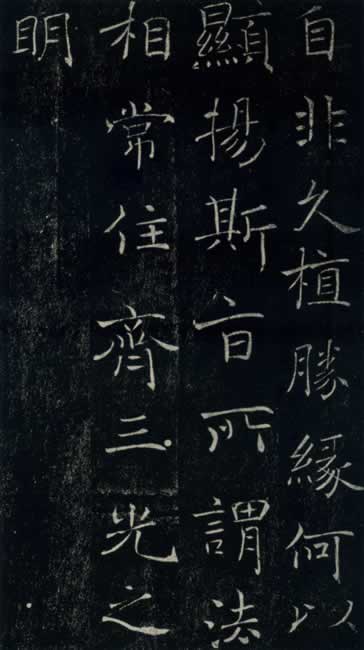 自非久植勝緣何以
顯揚斯旨所謂法
相常住齊三光之
明